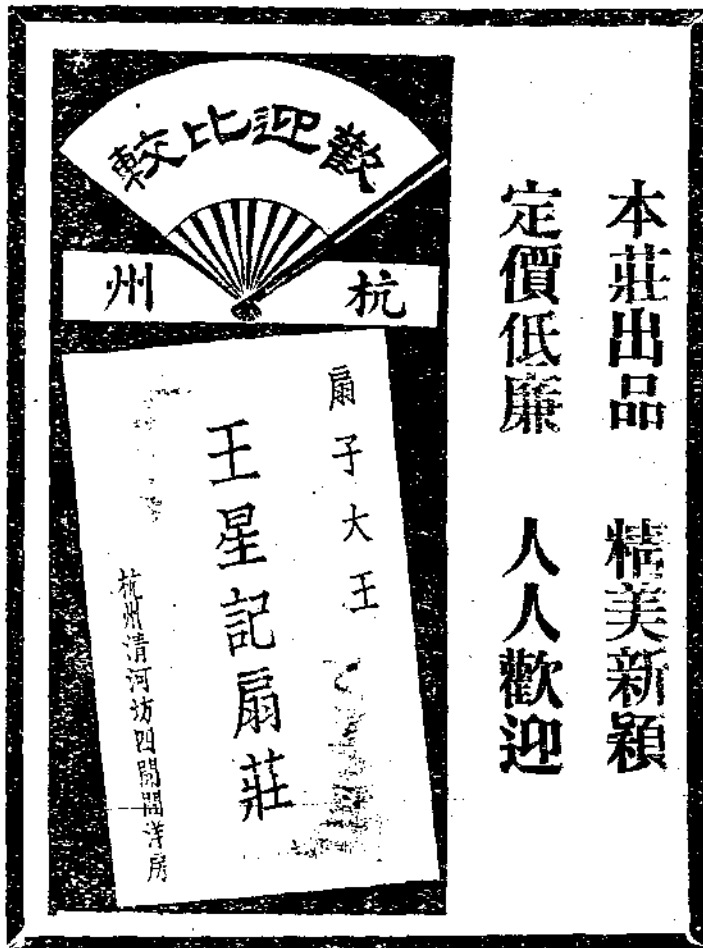 本莊出品　精美新穎
定價低廉　人人歡迎
歡迎比較
杭州
扇子大王
王星記扇莊
杭州清河坊四間闊洋房